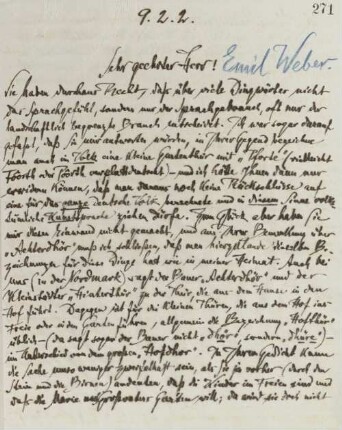 271
9. 2. 2.
Sehr geehrter Herr! Emil Weber.
Sie haben durchaus Recht, daß über viele Dingwörter, nicht
das Sprachgefühl, sondern nur der Sprachgebrauch, oft nur der
landschaftlich begrenzte Brauch entscheidet. Ich war sogar darauf
gefaßt, daß Sie mir antworten würden, in Ihrer Gegend bezeichne
man auch im Volk eine kleine Gartenthür mit "Pforte" (vielleicht
Poorth oder Pöorth
und ich hätte Ihnen dann nur
erwidern können, daß man daraus noch keine Rückschlüsse auf
eine für das ganze deutsche Volk berechnete und in diesem Sinne volks-
Kunstsprache ziehen dürfe. Zum Glück aber haben Sie
mir diesen Einwand nicht gemacht, und aus Ihrer Bemerkung über
"Achterdhör" muß ich schließen, daß man hierzulande dieselben Be-
zeichnungen für diese Dinge hat wie in meiner Heimat. Auch bei
uns (in der Nordmark) sagt der Bauer "Achterdhör" und der
Kleinstädter "Hinterthür" zu der Thür, die aus dem Hause in den
Hof führt. Dagegen ist für die kleinen Thüren, die aus dem Hof ins
Freie oder in den Garten führen, allgemein die Bezeichnung "Hofthür"
üblich (da sagt sogar der Bauer nicht "dhör", sondern "dhüre") –
im Unterschied von dem großen "Hofdhor". In Ihrem Gedicht kann
die Sache umso weniger zweifelhaft sein, als Sie ja vorher (durch den
Stein und die Birnen) andeuten, daß die Kinder im Freien sind und
daß die Marie aus Großvaters Garten will; da wird sie doch nicht